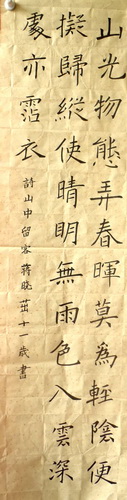 山光物態弄春暉莫為輕陰便
擬歸縱使晴明無雨色入雲深
處亦霑衣
詩山中留客蔣晓茁十一歲書